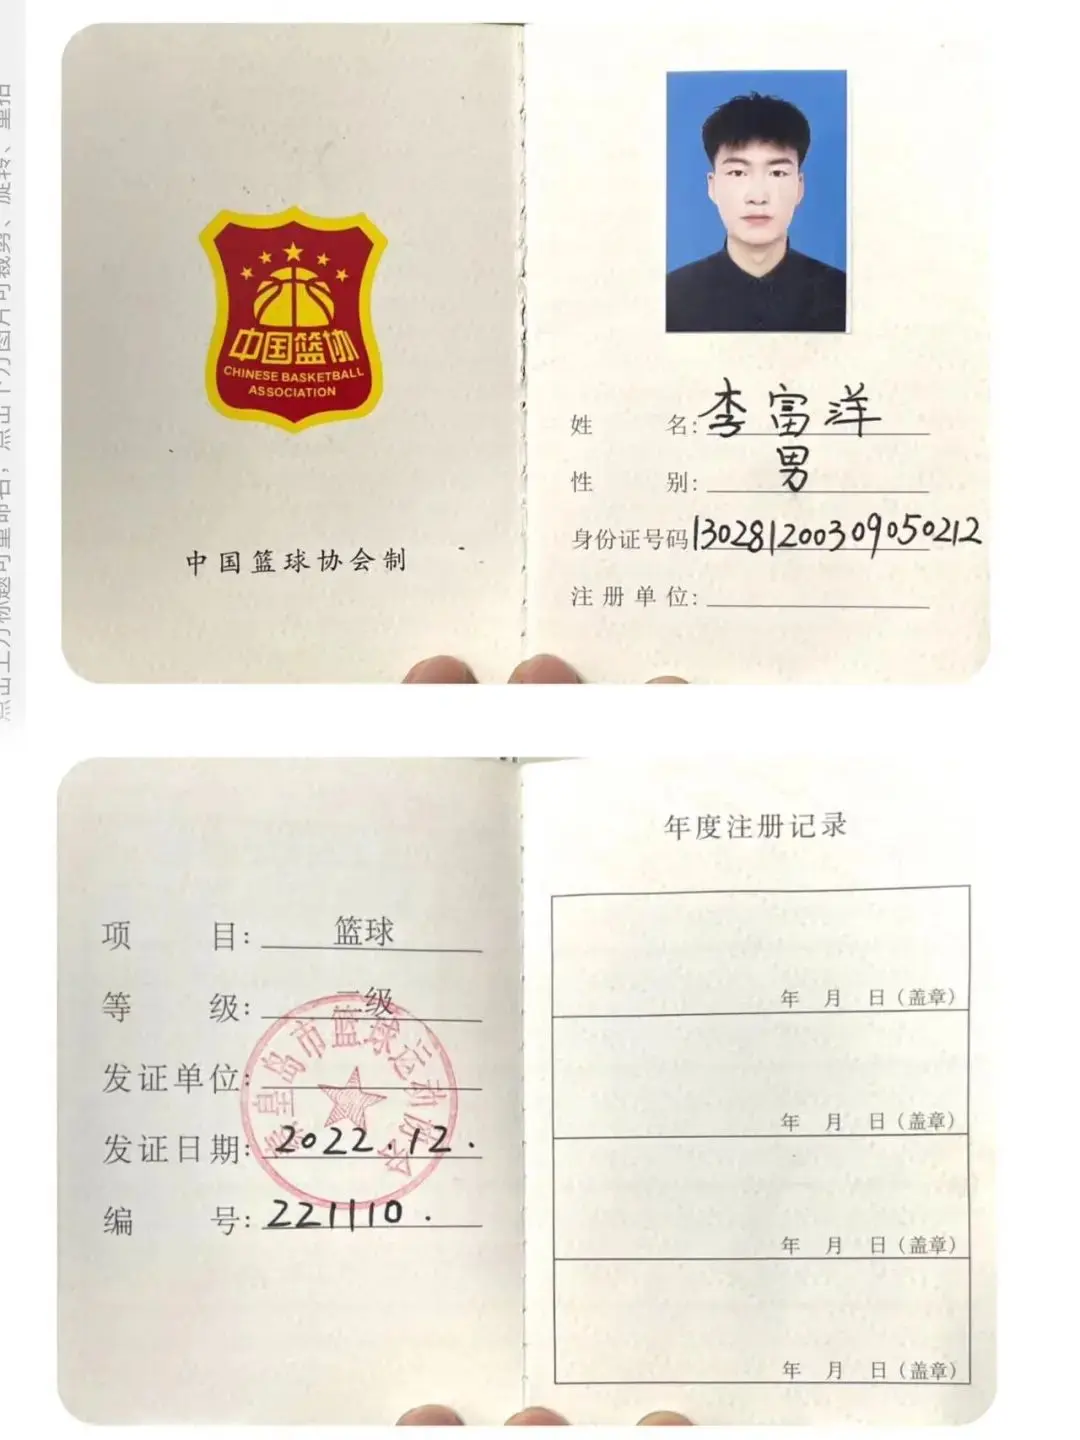 中国篮协
CHINESE BASKETBALL
ASSOCIATION
中国篮球协会制
姓名：李富洋
性别：男
身份证号码130281200309050212
注册单位：
项目：篮球
等级：二级
发证单位：
秦皇岛市篮球运动协会
发证日期：2022.12.
编号：221110.
年度注册记录
年 月 日（盖章）
年 月 日（盖章）
年 月 日（盖章）
年 月 日（盖章）